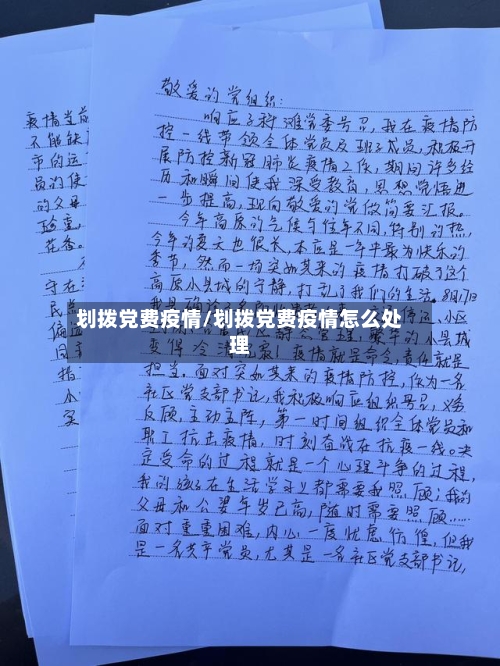 敬爱的党组织：
响应子科滩党委号召，我在疫情防
控一线带领全体党员及班子成员，积极开
展防控新冠肺炎疫情工作，期间许多经
历和瞬间使我深受教育，思想觉悟进
一步提高，现向敬爱的党做简要汇报。
今年高原的气候与往年不同，特别的热，
今年的夏天也很长，本应是一年中最为快乐的
季节，然而一场突如其来的疫情打破了这个
高原小县城的宁静，打乱了我们的生活。8月17日
小区
划拨党费疫情/划拨党费疫情怎么处
理
变得冷清 疫情就是命令，责任就是
担当。面对突如其来的疫情防控，作为一名
社区党支部书记，我积极响应组织号召，义务
反顾，主动主阵，第一时间组织全体党员和
职工抗击疫情，时刻奋战在抗疫一线。决
定受命的过程就是一个心理斗争的过程，
我的孩子在生活学习上都需要我照顾；我的
父母和公婆年岁已高，随时需要照顾……
面对重重困难，内心一度忧虑彷徨，但我
是一名共产党员，尤其是一名社区党支部书记，
疫情当前
不能缺
市的运
员的使
的父母
珍重，
花香。
守在
民点
偏
同
措
小
实